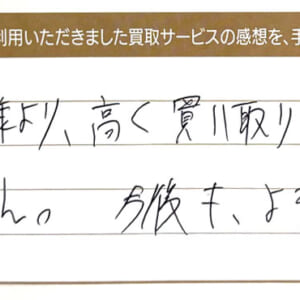 利用いただきました買取サービスの感想を、手
より、高く買い取り
ん。 今後も、よ